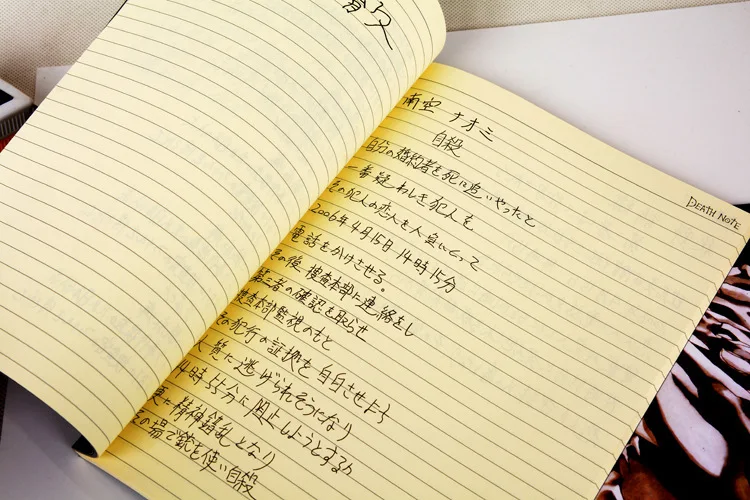 DEATH NOTE
南空 ナオミ
自殺
自分の婚約者を死に追いやったと
一番疑わしき犯人を
その犯人の恋人を人質にとって
2006年4月15日14時15分
電話をかけさせる。
その後、捜査本部に連絡をし
第三者の確認を取らせ
捜査本部監視のもと
その犯行の証拠を自白させよう
人質に逃げられそうになり
14時55分に阻止しようとするが
更に精神錯乱となり
その場で銃を使い自殺